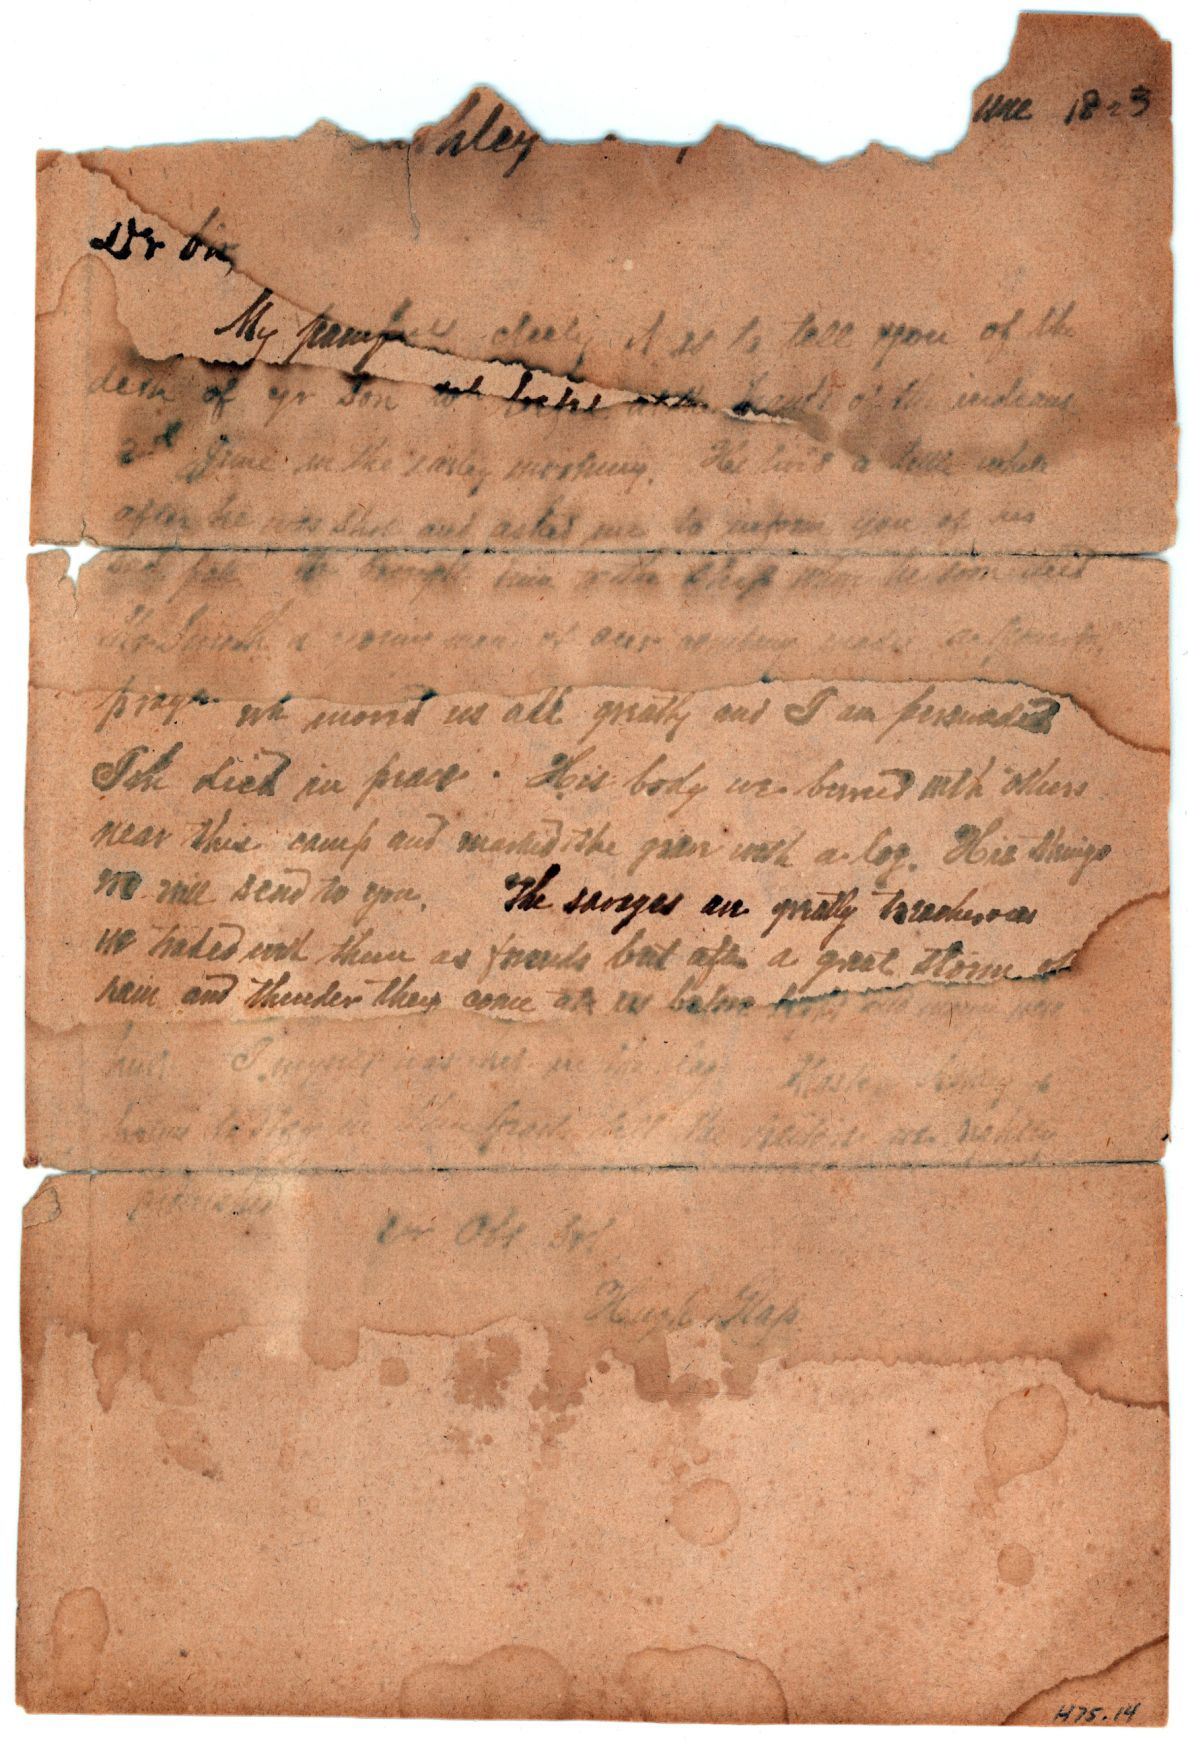 shley
une 1823
Dr Sir,
My painful duty it is to tell you of the
deth of yr Son wh befel at the hands of the indians
2d June in the early morning. He lived a little while
after he was shot and asked me to inform you of his
sad fate We brought him to the ship when he soon died
Mr Smith a young man of our company made a powerful
prayr wh moved us all greatly and I am persuaded
John died in peace. His body we buried with others
near this camp and marked the grave with a log. His things
we will send to you. The savages are greatly treacherous
we traded with them as friends but after a great storm of
rain and thunder they came at us before light and many were
hurt. I myself was hit in the leg. Master Ashley is
bound to stay in these parts till the traitors are rightly
punished
Yr Obt Svt
Hugh Glass
H75.14